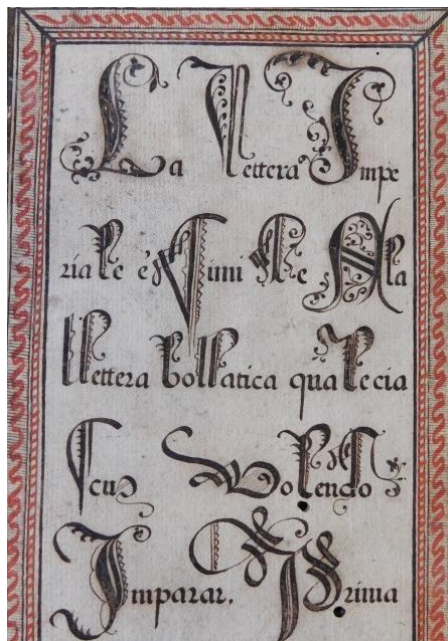 La lettera Impe
riale è Simile Ala
lettera bollatica quale cia
Volendo
Imparar. Prima